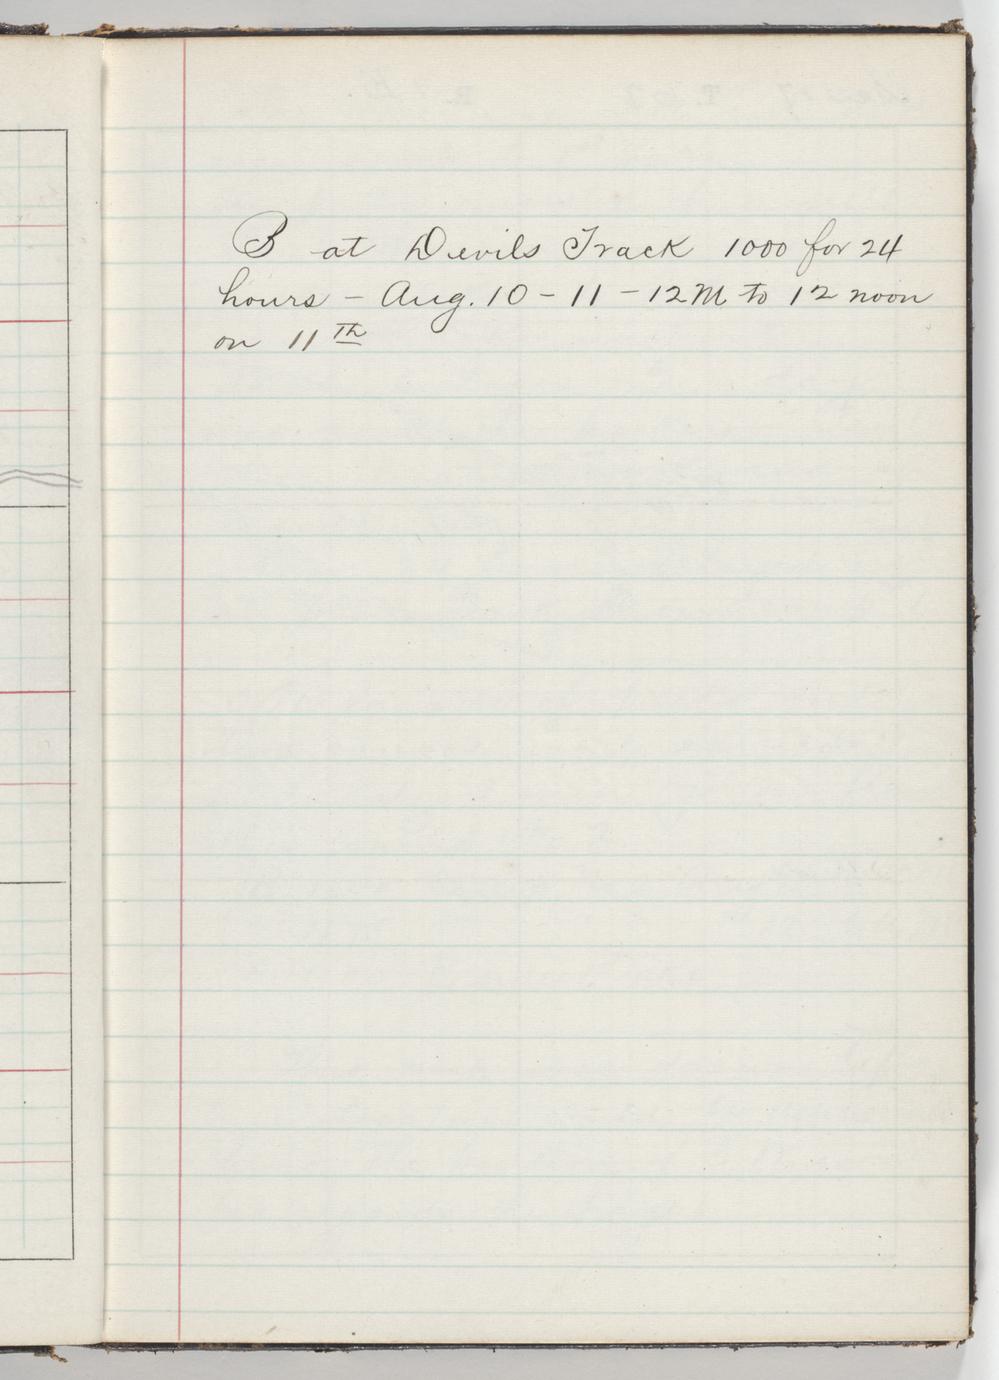 B at Devils Track 1000 for 24
hours - Aug. 10 - 11 - 12 M to 12 noon
on 11th